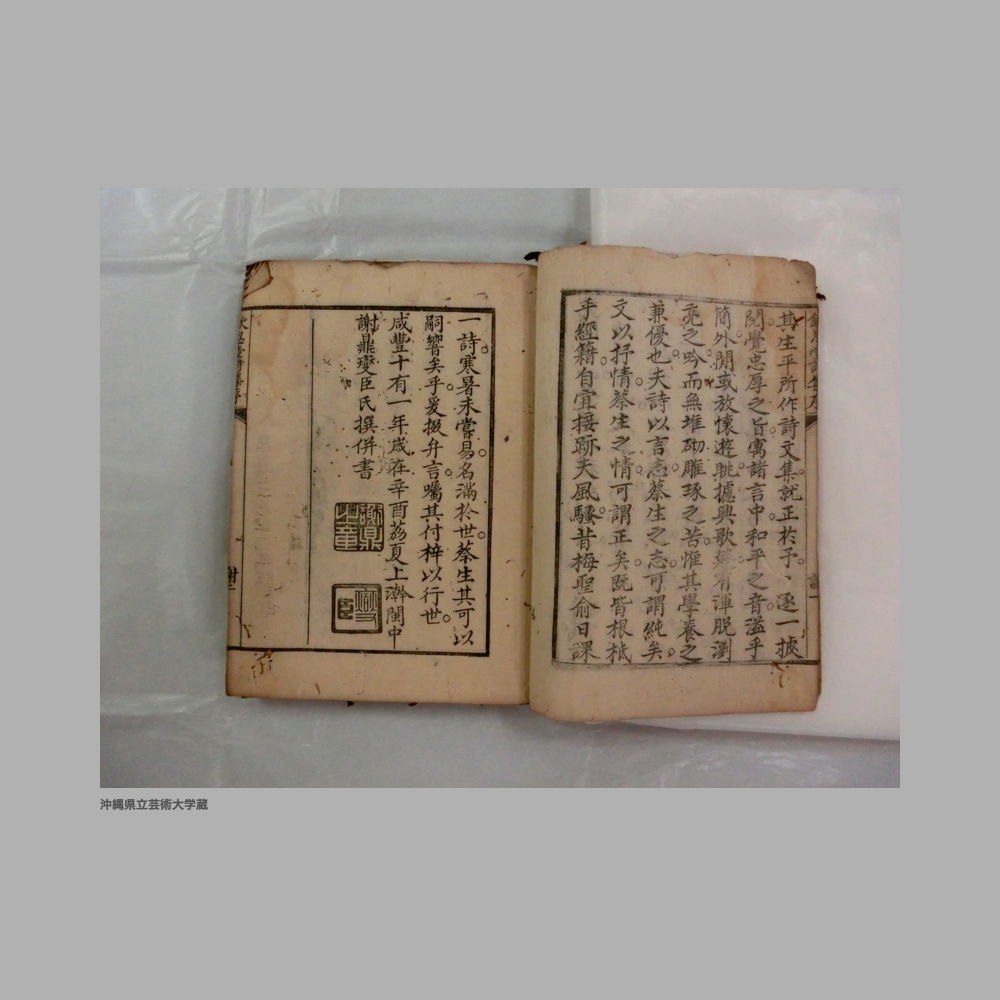 其生平所作詩文集就正於予予逐一披
閱覺忠厚之旨寓諸言中和平之音溢乎
簡外閒或放懷遊眺據興歌無有渾脫瀏
亮之吟而無堆砌雕琢之苦惟其學養之
兼優也夫詩以言志蔡生之志可謂純矣
文以抒情蔡生之情可謂正矣既皆根柢
乎經籍自宜接跡夫風騷昔梅聖俞日課
一詩寒暑未嘗易名滿於世蔡生其可以
嗣響矣乎爰掇弁言囑其付梓以行世
咸豐十有一年歲在辛酉荔夏上澣閩中
謝鼎燮臣氏撰併書
沖縄県立芸術大学蔵